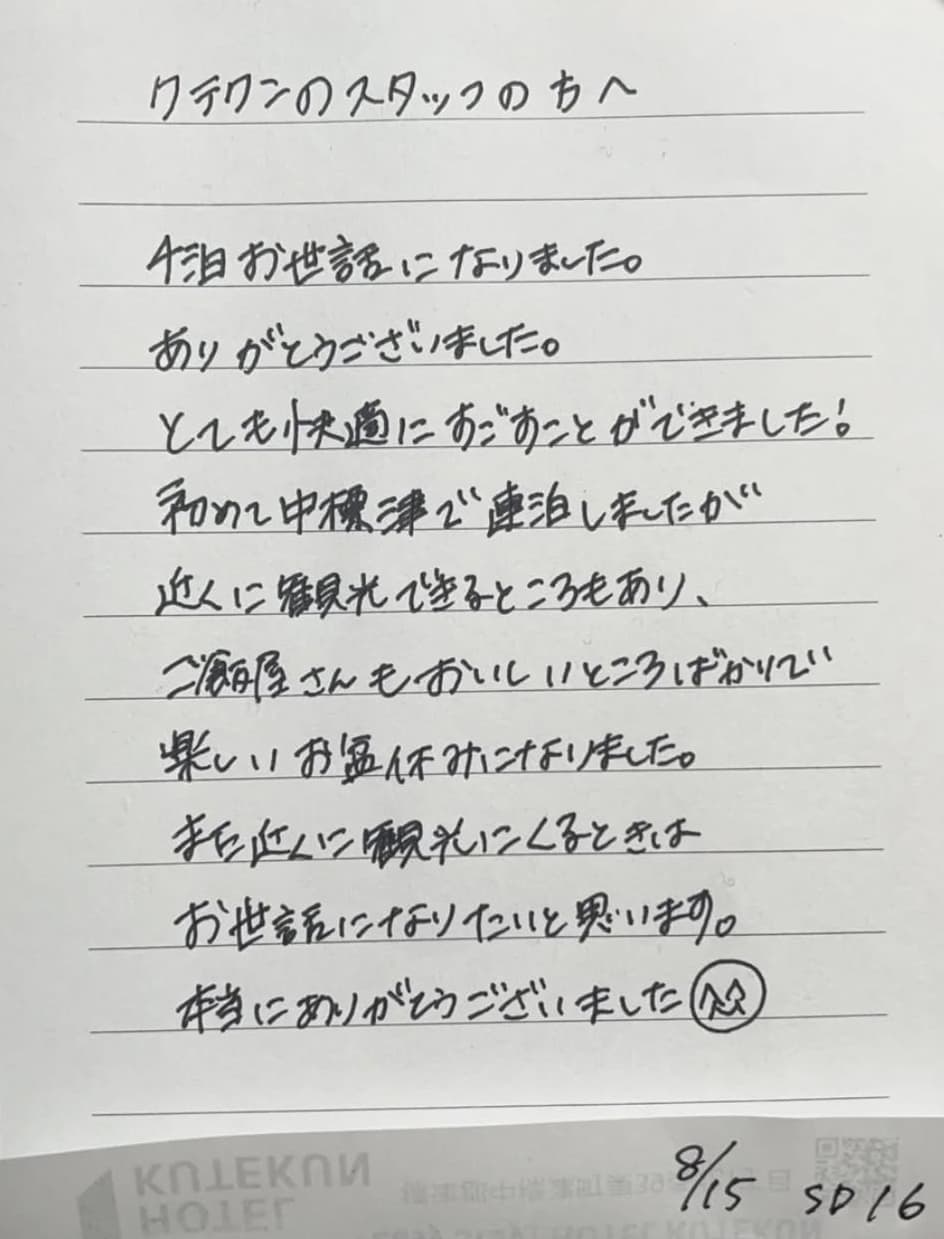 クテクンのスタッフの方へ
4泊お世話になりました。
ありがとうございました。
とても快適にすごすことができました!
初めて中標津で連泊しましたが
近くに観光できるところもあり、
ご飯屋さんもおいしいところばかりで
楽しいお盆休みになりました。
また近くに観光にくるときは
お世話になりたいと思います。
本当にありがとうございました
8/15 SD16
KUTEKUN
HOTEL